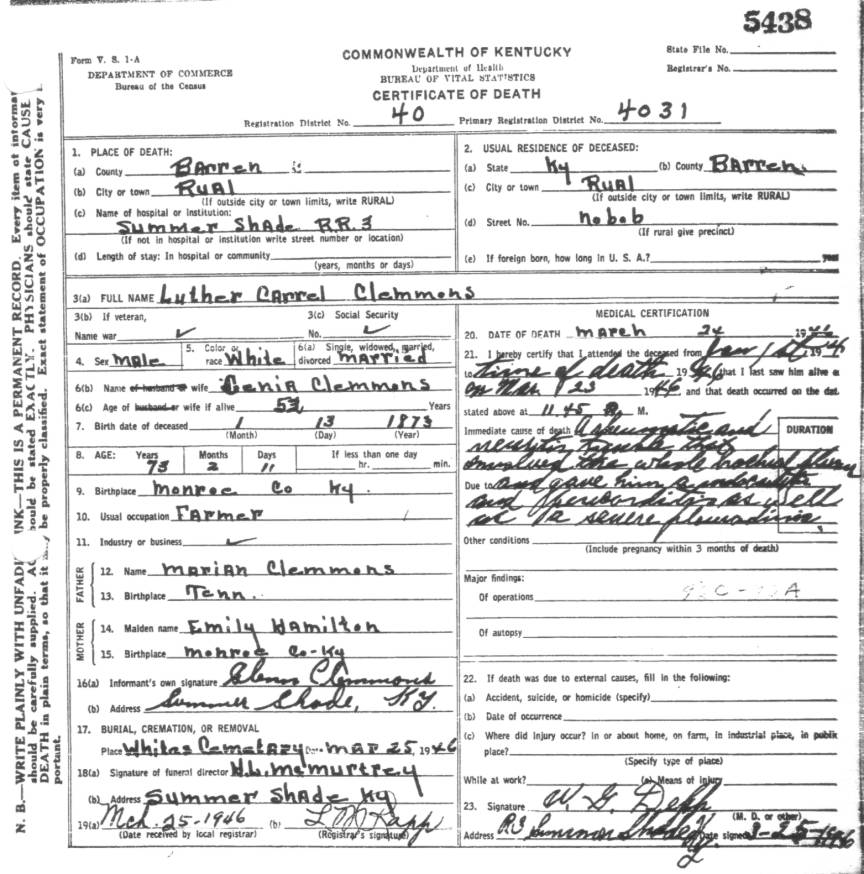 5438
Form V. S. 1-A
DEPARTMENT OF COMMERCE
Bureau of the Census
COMMONWEALTH OF KENTUCKY
Department of Health
BUREAU OF VITAL STATISTICS
CERTIFICATE OF DEATH
State File No.
Registrar's No.
Registration District No. 40 Primary Registration District No. 4031
N. B.—WRITE PLAINLY WITH UNFADI INK—THIS IS A PERMANENT RECORD. Every item of informat
should be carefully supplied. AG hould be stated EXACTLY. PHYSICIANS should state CAUSE
DEATH in plain terms, so that it may be properly classified. Exact statement of OCCUPATION is very i
portant.
1. PLACE OF DEATH:
(a) County Barren
(b) City or town Rual
(If outside city or town limits, write RURAL)
(c) Name of hospital or institution:
Summer Shade R.R.3
(If not in hospital or institution write street number or location)
(d) Length of stay: In hospital or community
(years, months or days)
2. USUAL RESIDENCE OF DECEASED:
(a) State Ky (b) County Barren
(c) City or town Rual
(If outside city or town limits, write RURAL)
(d) Street No. nobob
(If rural give precinct)
(e) If foreign born, how long in U. S. A.? years
3(a) FULL NAME Luther Carrel Clemmons
3(b) If veteran, 3(c) Social Security
Name war No.
4. Sex Male 5. Color or race White 6(a) Single, widowed, married, divorced Married
6(b) Name of husband or wife Genia Clemmons
6(c) Age of husband or wife if alive 53 Years
7. Birth date of deceased 1 13 1873
(Month) (Day) (Year)
8. AGE: Years Months Days If less than one day
73 2 11 hr. min.
9. Birthplace Monroe Co Ky.
10. Usual occupation Farmer
11. Industry or business
FATHER
12. Name Marian Clemmons
13. Birthplace Tenn.
MOTHER
14. Maiden name Emily Hamilton
15. Birthplace Monroe Co-Ky
16(a) Informant's own signature Glenn Clemmons
(b) Address Summer Shade, Ky.
17. BURIAL, CREMATION, OR REMOVAL
Place Whites Cemetary Date Mar 25, 1946
18(a) Signature of funeral director H.L. McMurtrey
(b) Address Summer Shade Ky
19(a) Mch. 25-1946 (b)
(Date received by local registrar) (Registrar's signature)
MEDICAL CERTIFICATION
20. DATE OF DEATH March 24 1946
21. I hereby certify that I attended the deceased from Jan 1st 194
to time of death 1946 that I last saw him alive
on Mar 23 1946 and that death occurred on the dat
stated above at 11.45 P. M.
Immediate cause of death and DURATION
trouble that
involved the whole
Due to and gave him
and as well
as severe
Other conditions
(Include pregnancy within 3 months of death)
Major findings:
Of operations
Of autopsy
22. If death was due to external causes, fill in the following:
(a) Accident, suicide, or homicide (specify)
(b) Date of occurrence
(c) Where did injury occur? In or about home, on farm, in industrial place, in public
place?
(Specify type of place)
While at work? (e) Means of injury
23. Signature W. G. Depp
(M. D. or other)
Address R3 Summer Shade Ky Date signed 3-25-1946